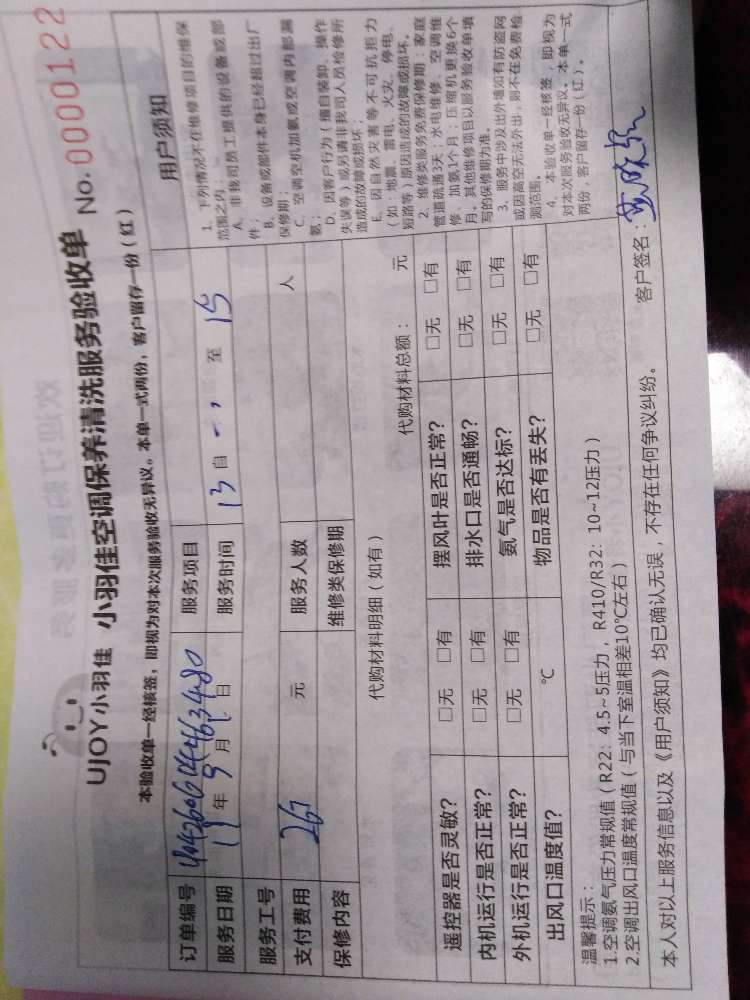 UJOY小羽佳 小羽佳空调保养清洗服务验收单 No. 0000122
本验收单一经核签，即视为对本次服务验收无异议。本单一式两份，客户留存一份（红）
订单编号 服务项目
服务日期 年 9 月 日 服务时间 13 自 至 15
服务工号
支付费用 267 元 服务人数 人
保修内容 维修类保修期
代购材料明细（如有） 代购材料总额： 元
遥控器是否灵敏？ □无 □有 摆风叶是否正常？ □无 □有
内机运行是否正常？ □无 □有 排水口是否通畅？ □无 □有
外机运行是否正常？ □无 □有 氨气是否达标？ □无 □有
出风口温度值？ ℃ 物品是否有丢失？ □无 □有
用户须知
1、下列情况不在维修项目的维保
范围之内：
A、非我司员工提供的设备或部
件；
B、设备或部件本身已经超过出厂
保修期；
C、空调空机加氨或空调内部漏
氨；
D、因客户行为（擅自装卸、操作
失误等）或另请非我司人员检修所
造成的故障或损坏；
E、因自然灾害等不可抗拒力
（如：地震、雷电、火灾、停电、
短路等）原因造成的故障或损坏。
2、维修类服务免费保修期：家庭
管道疏通3天；水电维修、空调维
修、加氨1个月；压缩机更换6个
月。其他维修项目以服务验收单填
写的保修期为准。
3、服务中涉及出外墙如有防盗网
或因高空无法外出，则不在免费检
测范围。
4、本验收单一经核签，即视为
对本次服务验收无异议。本单一式
两份，客户留存一份（红）。
温馨提示：
1.空调氨气压力常规值（R22：4.5~5压力，R410/R32：10~12压力）
2.空调出风口温度常规值（与当下室温相差10℃左右）
本人对以上服务信息以及《用户须知》均已确认无误，不存在任何争议纠纷。 客户签名：